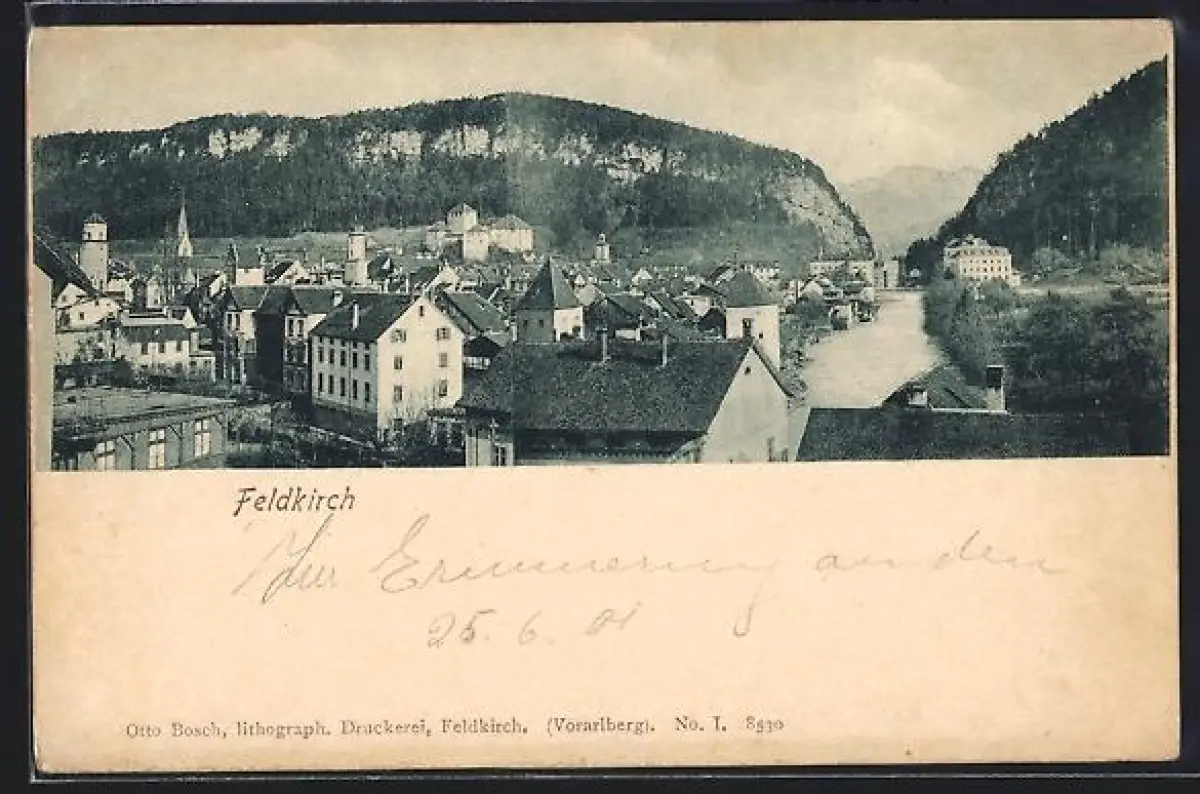 Feldkirch
Zur Erinnerung an den
25. 6. 01
Otto Bosch, lithograph. Druckerei, Feldkirch. (Vorarlberg). No. I. 8530